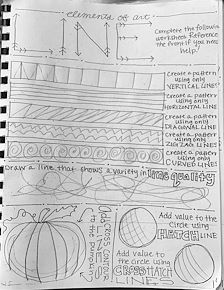 elements of art:
LINE
Complete the following
worksheet. Reference
the front if you need
help!
Create a pattern
using only
VERTICAL LINES
Create a pattern
using only
HORIZONTAL LINE
Create a pattern
using only
DIAGONAL LINE
Create a pattern
using only
ZIGZAG LINES
Create a pattern
using only
CURVED LINES
Draw a line that shows a variety in line quality
Add
CROSS CONTOUR
to the pumpkin
Add value to
the circle using
HATCH LINE
Add value to the
circle using
CROSSHATCH
LINES